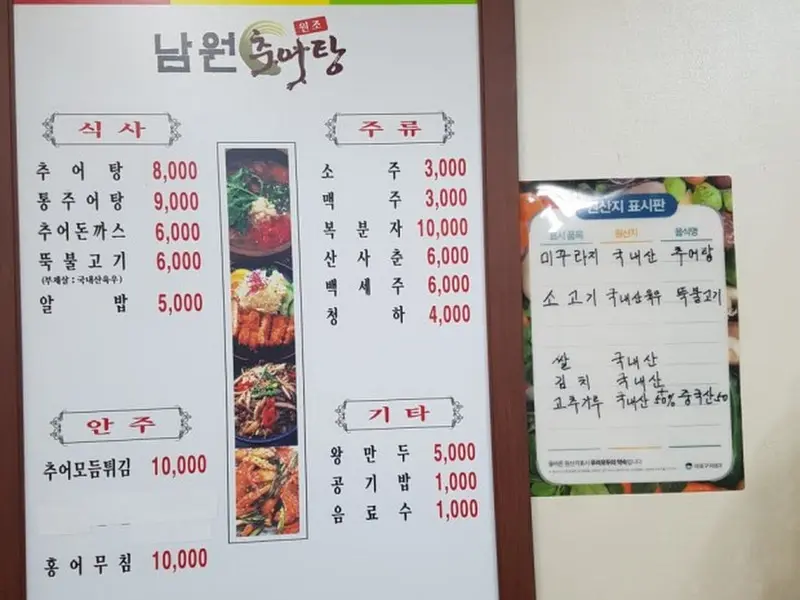 남원 추어탕
원조
식사
추어탕 8,000
통추어탕 9,000
추어돈까스 6,000
뚝불고기 6,000
(부채살 : 국내산육우)
알밥 5,000
안주
추어모듬튀김 10,000
홍어무침 10,000
주류
소주 3,000
맥주 3,000
복분자 10,000
산사춘 6,000
백세주 6,000
청하 4,000
기타
왕만두 5,000
공기밥 1,000
음료수 1,000
원산지 표시판
표시 품목 원산지 음식명
미꾸라지 국내산 추어탕
소고기 국내산육우 뚝불고기
쌀 국내산
김치 국내산
고추가루 국내산 50% 중국산 50